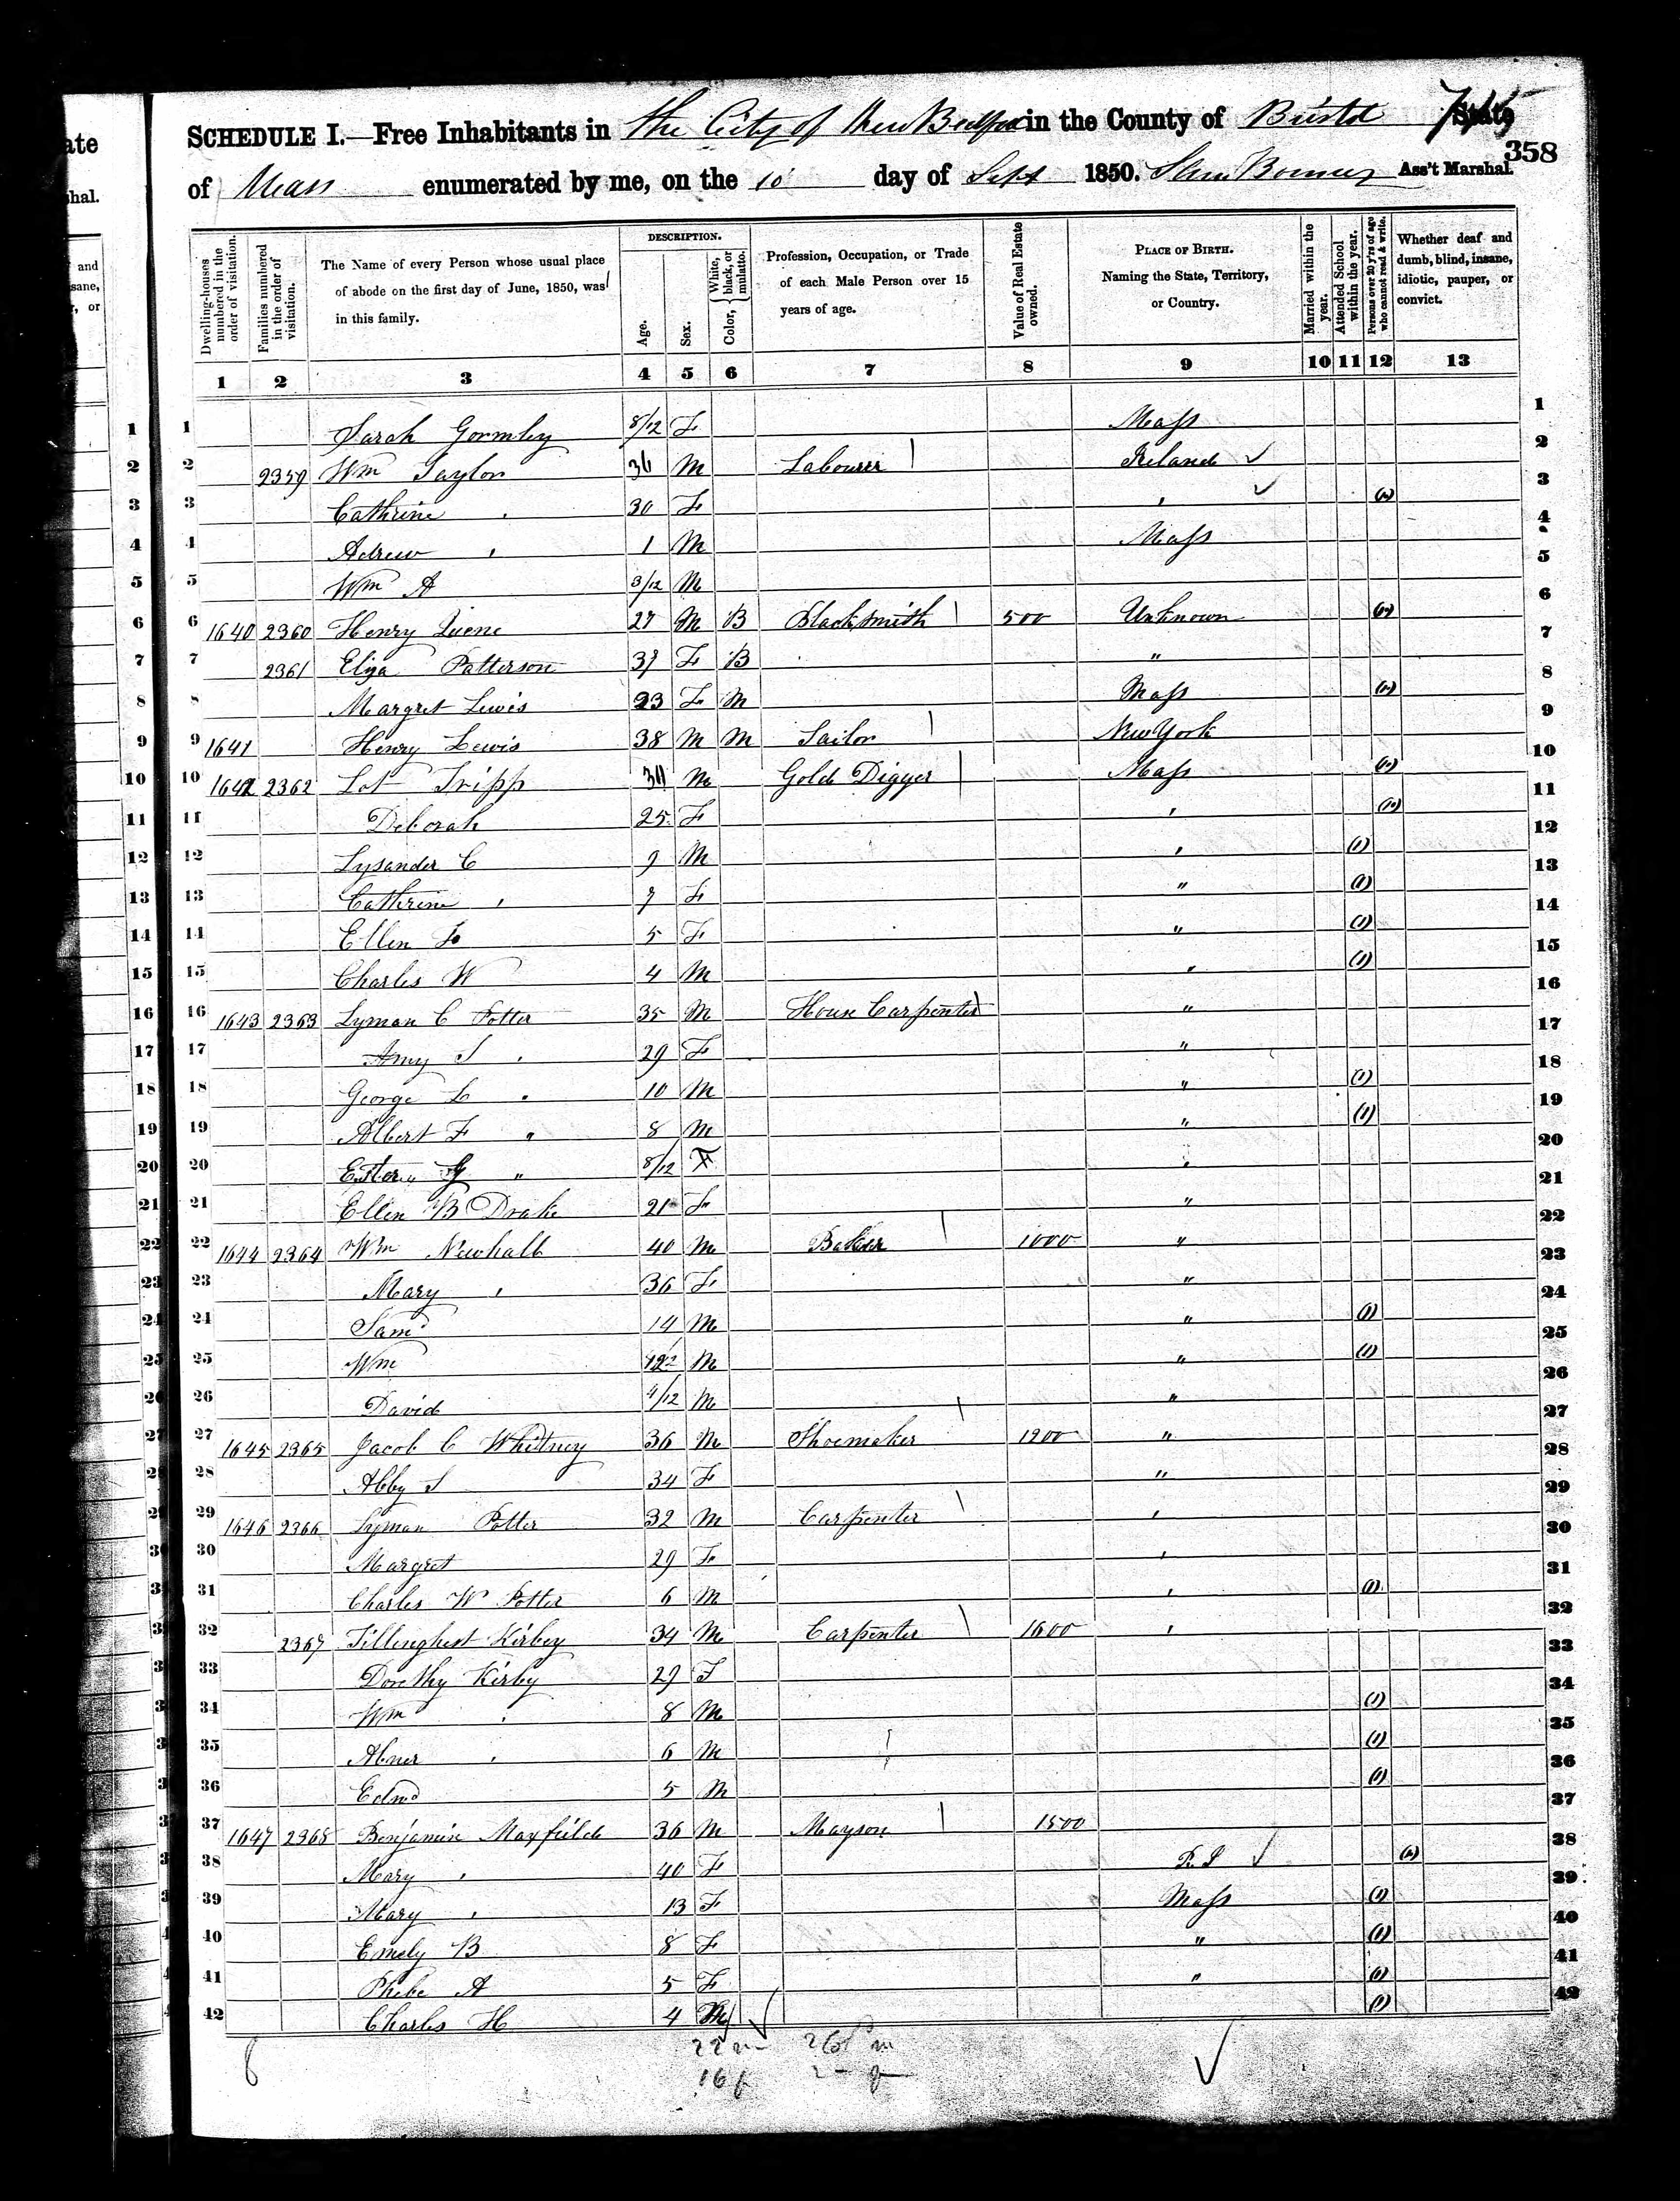 SCHEDULE I.—Free Inhabitants in The City of New Bedford in the County of Bristol State
358
of Mass enumerated by me, on the 10 day of Sept 1850. Ass't Marshal.
Dwelling-houses numbered in the order of visitation.
Families numbered in the order of visitation.
The Name of every Person whose usual place of abode on the first day of June, 1850, was in this family.
DESCRIPTION.
Age.
Sex.
Color, { White, black, or mulatto.
Profession, Occupation, or Trade of each Male Person over 15 years of age.
Value of Real Estate owned.
PLACE OF BIRTH. Naming the State, Territory, or Country.
Married within the year.
Attended School within the year.
Persons over 20 y'rs of age who cannot read & write.
Whether deaf and dumb, blind, insane, idiotic, pauper, or convict.
1 2 3 4 5 6 7 8 9 10 11 12 13
1 Sarah Gormley 8/12 F Mass 1
2 2359 Wm Taylor 36 M Labourer Ireland ✓ 2
3 Cathrine " 30 F " ✓ 3
4 Adrew " 1 M Mass 4
5 Wm A 3/12 M 5
6 1640 2360 Henry 27 M B Blacksmith 500 Unknown 6
7 2361 Eliza Patterson 37 F B " 7
8 Margret Lewis 23 F M Mass 8
9 1641 Henry Lewis 38 M M Sailor New York 9
10 1642 2362 Lot Tripp M Gold Digger Mass 10
11 Deborah 25 F " 11
12 Lysander C 9 M " (1) 12
13 Cathrine " 7 F " (1) 13
14 Ellen 5 F " (1) 14
15 Charles W 4 M " (1) 15
16 1643 2363 Lyman C Potter 35 M House Carpenter " 16
17 Amy S " 29 F " 17
18 George L " 10 M " (1) 18
19 Albert F " 8 M " (1) 19
20 G " 8/12 F " 20
21 Ellen B Drake 21 F " 21
22 1644 2364 Wm Newhall 40 M Baker 1000 " 22
23 Mary " 36 F " 23
24 Saml 14 M " (1) 24
25 Wm 12 M " (1) 25
26 David 4/12 M " 26
27 1645 2365 Jacob C Whitney 36 M Shoemaker 1200 " 27
28 Abby S 34 F " 28
29 1646 2366 Lyman Potter 32 M Carpenter " 29
30 Margret 29 F " 30
31 Charles W Potter 6 M " (1) 31
32 2367 Tillinghest Kirbey 34 M Carpenter 1600 " 32
33 Dorothy Kirby 29 F 33
34 Wm " 8 M (1) 34
35 Abner " 6 M (1) 35
36 Edmd 5 M (1) 36
37 1647 2368 Benjamin Maxfield 36 M Mayson 1500 37
38 Mary " 40 F R. I ✓ 38
39 Mary " 13 F Mass (1) 39
40 Emely B 8 F " (1) 40
41 Phebe A 5 F " (1) 41
42 Charles H 4 M (1) 42
22 m
16 f